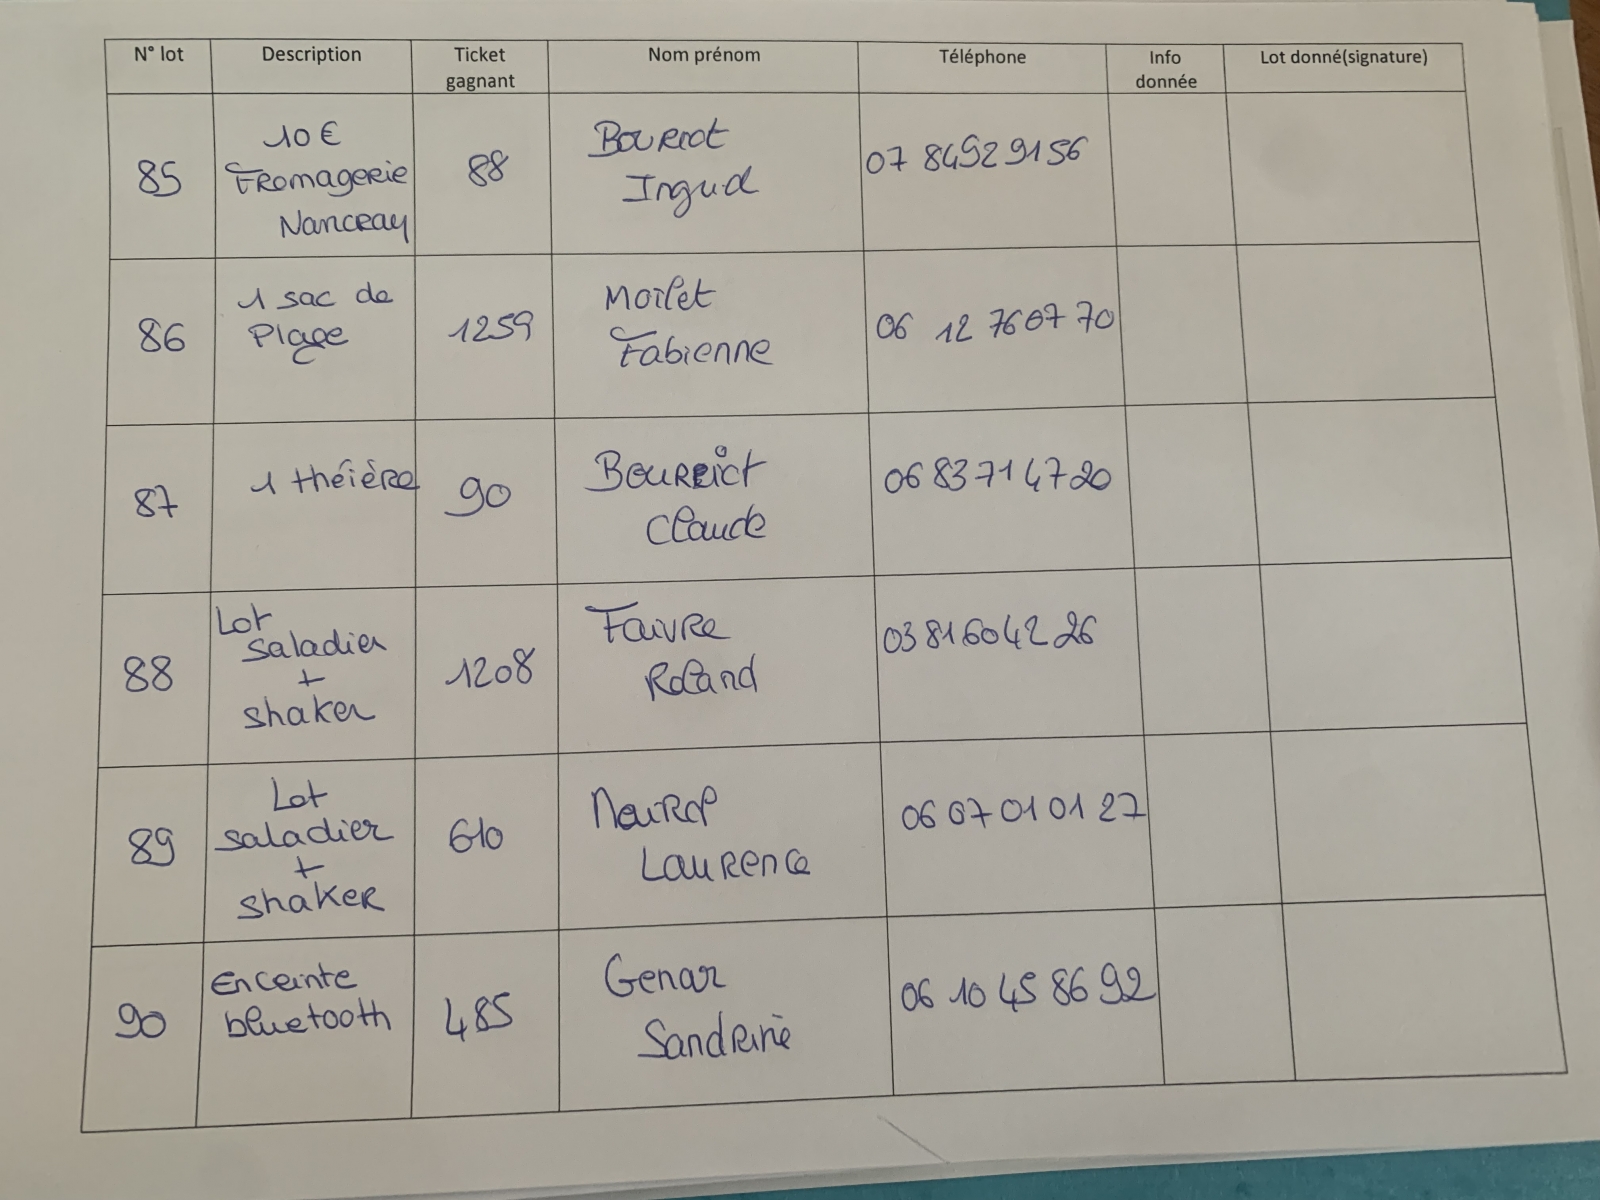 N° lot Description Ticket gagnant Nom prénom Téléphone Info donnée Lot donné(signature)
85 10 € Fromagerie Nancray 88 Bouriot Ingrid 07 84 92 91 56
86 1 sac de Plage 1259 Fabienne 06 12 76 07 70
87 1 théière 90 Claude 06 83 71 47 20
88 Lot saladier + shaker 1208 Faivre Roland 03 81 60 42 26
89 Lot saladier + shaker 610 Laurence 06 07 01 01 27
90 Enceinte bluetooth 485 Sandrine 06 10 45 86 92